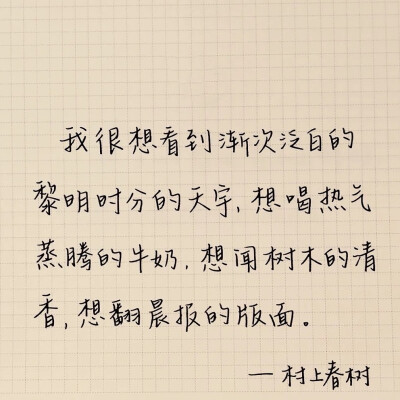 我很想看到渐次泛白的
黎明时分的天宇,想喝热气
蒸腾的牛奶,想闻树木的清
香,想翻晨报的版面。
—村上春树